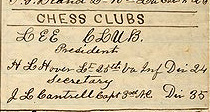 CHESS CLUBS
LEE CLUB.
President
H L Hover Lt 25th Va Inf Div 24
Secretary
J L Cantrell Capt 3rd N.C. Div 35